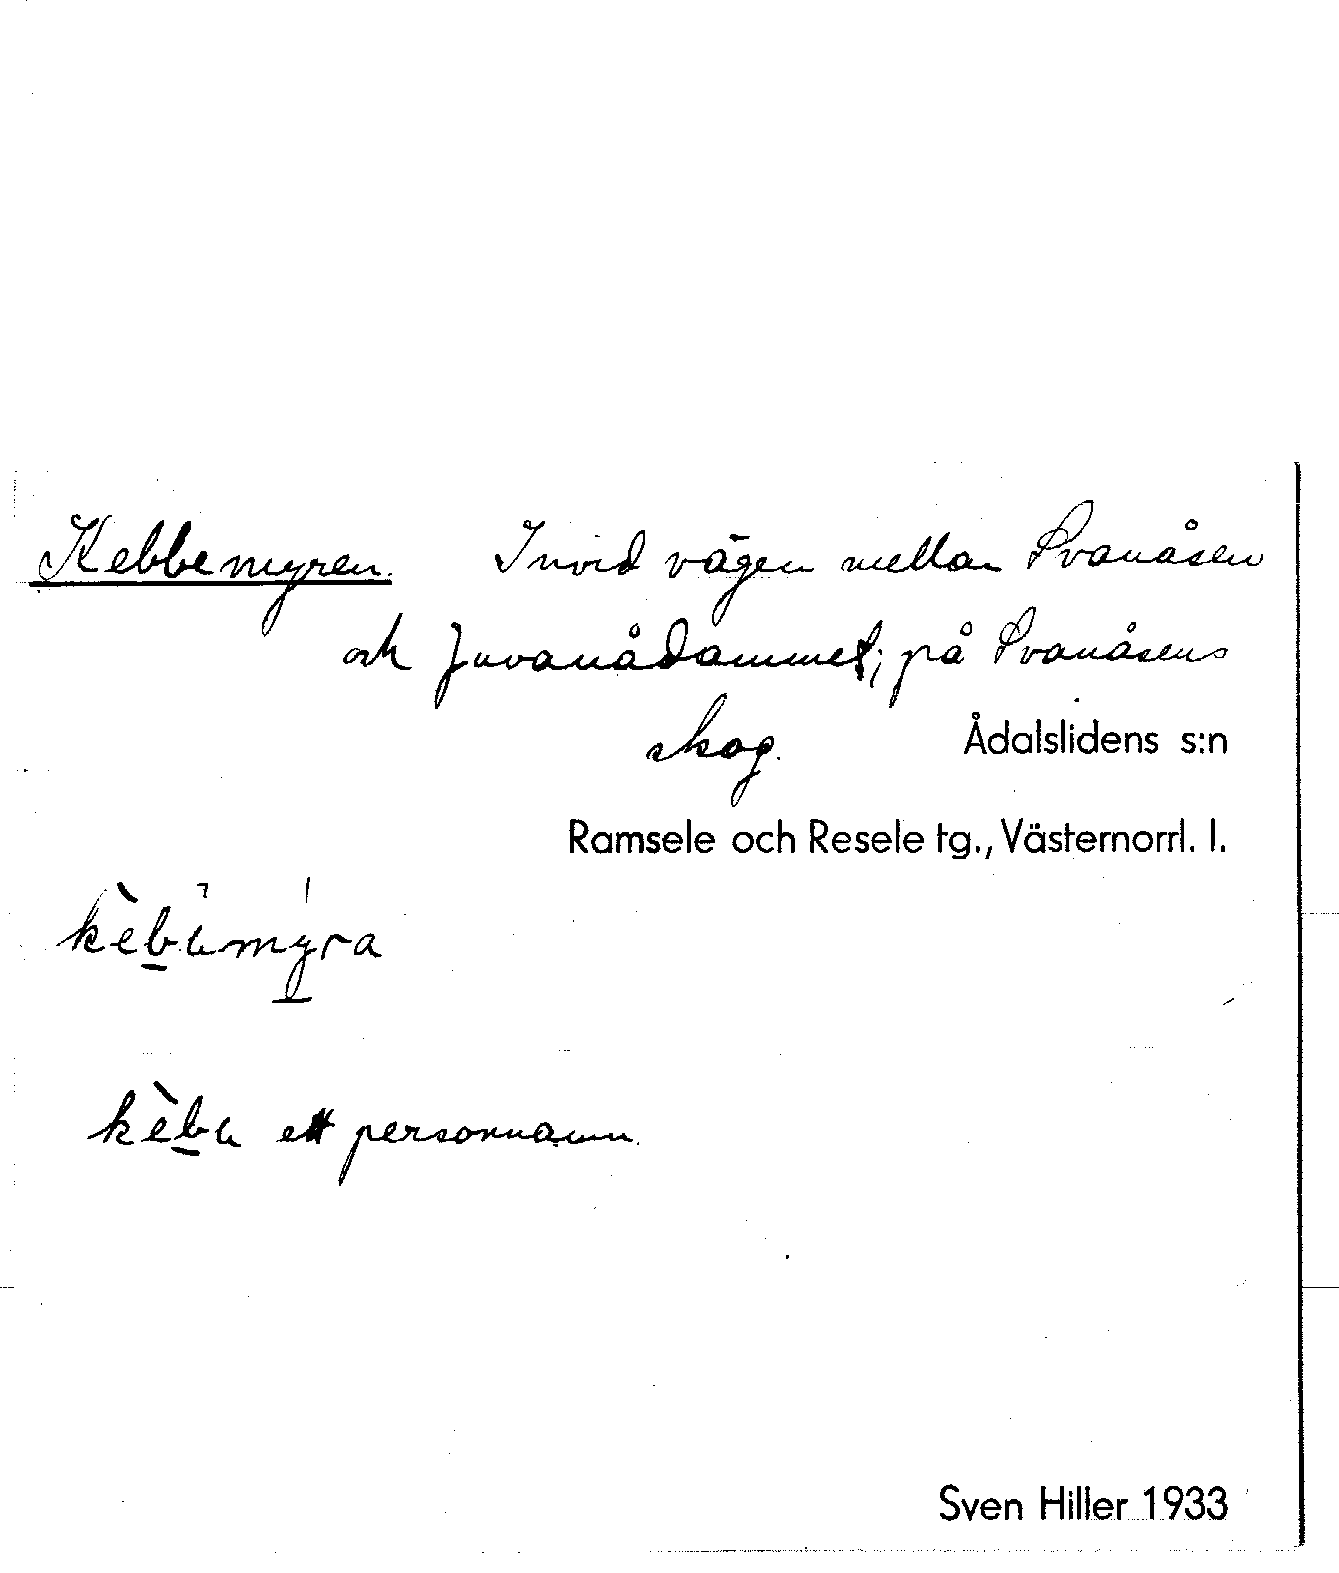 Kebbemyren. Invid vägen mellan Svanåsen
och Juvanådammet; på Svanåsens
skog. Ådalslidens s:n
Ramsele och Resele tg., Västernorrl. l.
kèbamyra
kèba ett personnamn.
Sven Hiller 1933